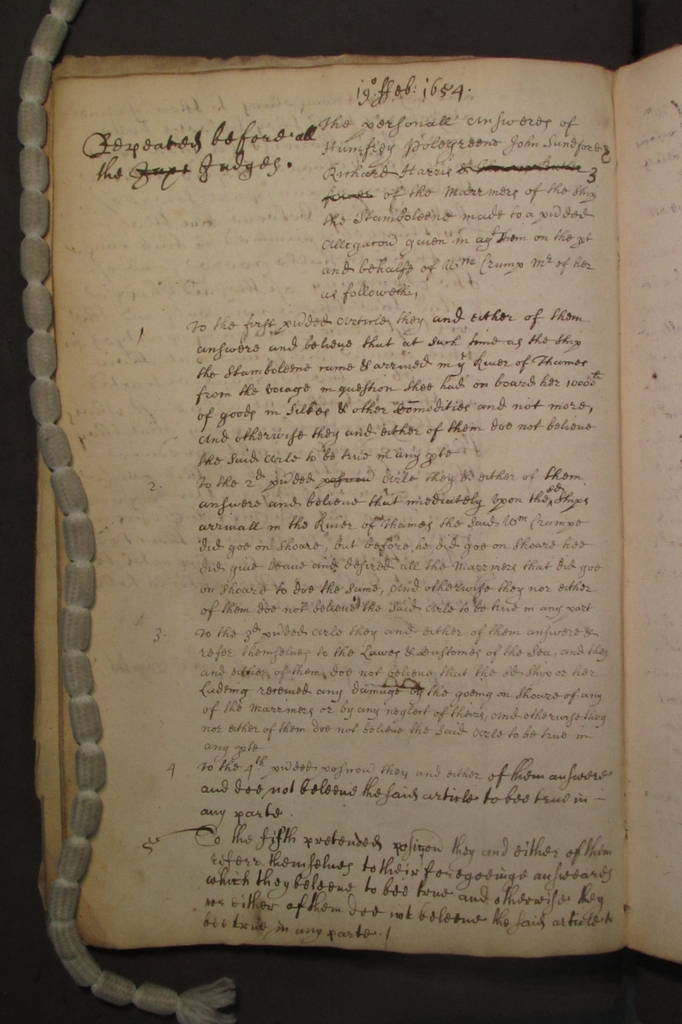 19º ffeb: 1654.
Repeated before all
the Judges.
The personall answeres of
Humfrey Polegreene John Sandford
Richard Harris &
of the Marrmers of the ship
the Stamboleene made to a p'nded
allegacon given in agt them on the pt
and behalfe of Wm Crump Mr of her
as followeth,
1 To the first p'nded Article they and either of them
answere and beleive that at such time as the ship
the Stamboleene came & arrived in ye River of Thames
from the voiage in question shee had on board her
of goods in Silkes & other Comodities and not more,
And otherwise they and either of them doe not beleive
the said Arle to be true in any pte
2. To the 2d p'nded Arle they & either of them
answere and beleive that imediately upon the sd ships
arrivall in the River of Thames the said Wm Crumpe
did goe on shoare, but before he did goe on shoare hee
did give leave and desired all the Marrmers that did goe
on shoare to doe the same, And otherwise they nor either
of them doe not beleive the said Arle to be true in any part
3. To the 3d p'nded Arle they and either of them answere &
refer themselves to the Lawes & Customes of the Sea, and they
and either of them doe not beleive that the sd ship or her
Ladeing received any damage by the goeing on shoare of any
of the Marrmers or by any neglect of theirs, And otherwise they
nor either of them doe not beleive the said Arle to be true in
any pte
4 To the 4th p'nded posicon they and either of them answere
and doe not beleeve the said article to bee true in
any parte.
5 To the fifth pretended posicon they and either of them
referr themselves to their foregoeinge answeares
which they beleeve to bee true and otherwise they
nor either of them doe not beleeve the said article to
bee true in any parte./